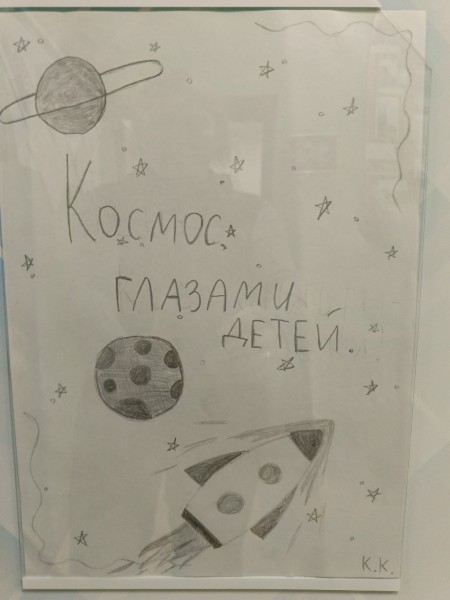 Космос
глазами
детей.
К.К.